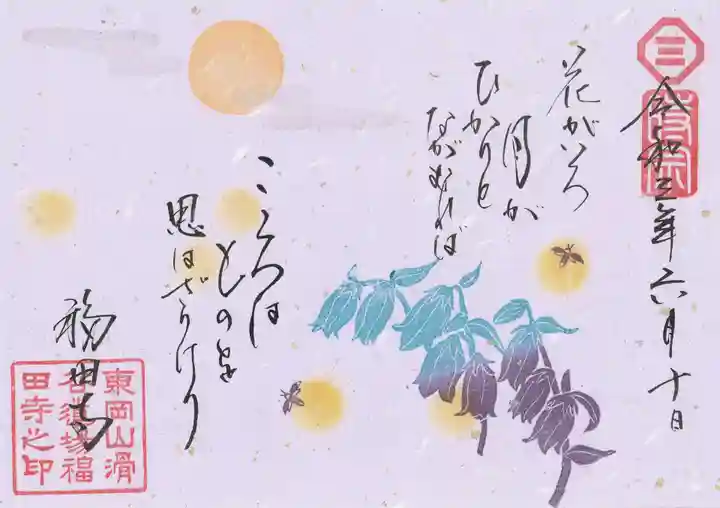 令和三年六月十日
花がいろ
月が
ひかりと
ながむれば
こゝろは
ものを
思はざりけり
福田寺
三
東岡山滑
谷道場福
田寺之印